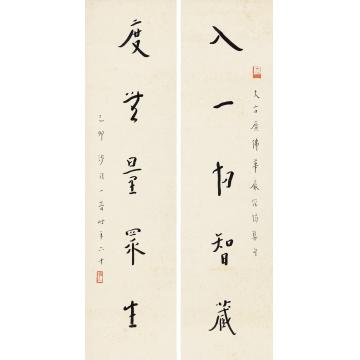 入一切智藏
大方廣佛華嚴經偈集句
度無量眾生
己卯沙門一音時年六十